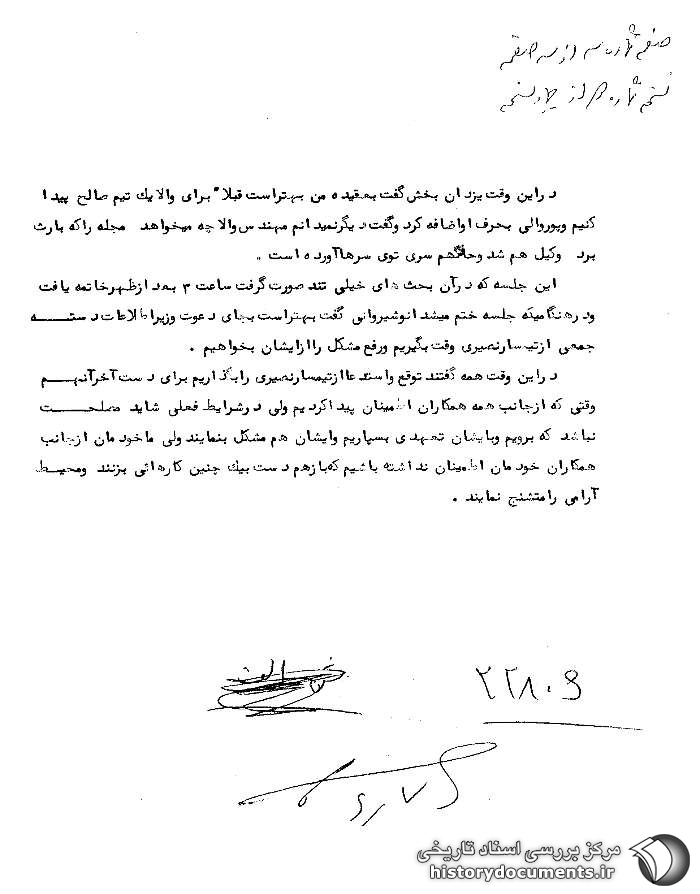 صفحه شماره سه از سه صفحه
نسخه شماره از چهار نسخه
در این وقت یزدان بخش گفت بعقیده من بهتراست قبلاً برای والا یک تیم صالح پیدا
کنیم وپوروالی بحرف اواضافه کرد وگفت دیگرنمیدانم مهندس والا چه میخواهد مجله راکه بارث
برد وکیل هم شد وحالاهم سری توی سرهاآورده است .
این جلسه که درآن بحث های خیلی تند صورت گرفت ساعت ۳ بعد ازظهرخاتمه یافت
ودرهنگامیکه جلسه ختم میشد انوشیروانی گفت بهتراست بجای دعوت وزیراطلاعات دسته
جمعی ازتیمسارنصیری وقت بگیریم ورفع مشکل راازایشان بخواهیم .
دراین وقت همه گفتند توقع واستدعاازتیمسارنصیری رابگذاریم برای دست آخرآنهم
وقتی که ازجانب همه همکاران اطمینان پیداکردیم ولی درشرایط فعلی شاید مصلحت
نباشد که برویم وبایشان تعهدی بسپاریم وایشان هم مشکل بنمایند ولی ماخودمان ازجانب
همکاران خودمان اطمینان نداشته باشیم که بازهم دست بیک چنین کارهائی بزنند ومحیط
آرامی رامتشنج نمایند .
۲۲۸۰۹
مرکز بررسی اسناد تاریخی
historydocuments.ir